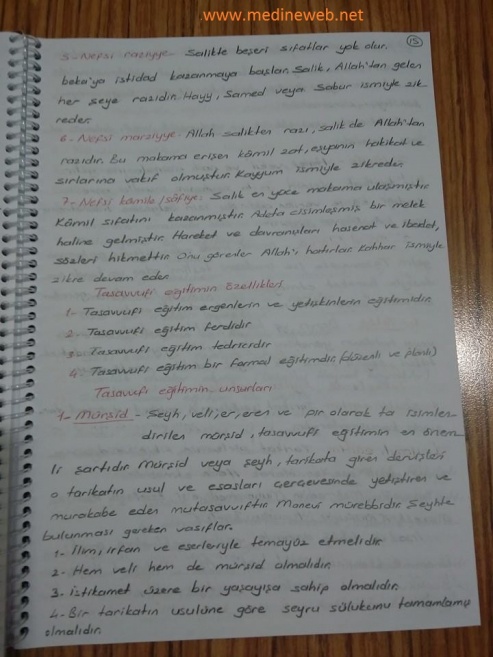 www.medineweb.net
15
5-Nefsi raziyye- Salikte beşeri sıfatlar yok olur.
beka'ya istidad kazanmaya başlar. Salik, Allah'tan gelen
her şeye razıdır. Hayy, Samed veya Sabur ismiyle zik-
reder.
6-Nefsi marziyye- Allah salikten razı, salik de Allah'tan
razıdır. Bu makama erişen kâmil zat, eşyanın hakikat ve
sırlarına vakıf olmuştur. Kayyum ismiyle zikreder.
7-Nefsi kamile/safiye- Salik en yüce makama ulaşmıştır
Kâmil sıfatını kazanmıştır. Adeta cisimleşmiş bir melek
haline gelmiştir. Hareket ve davranışları hasenat ve ibadet,
sözleri hikmettir. Onu görenler Allah'ı hatırlar. Kahhar ismiyle
zikre devam eder.
Tasavvufi eğitimin özellikleri
1- Tasavvufi eğitim ergenlerin ve yetişkinlerin eğitimidir.
2- Tasavvufi eğitim ferdidir
3- Tasavvufi eğitim tedricidir
4- Tasavvufi eğitim bir formal eğitimdir. (düzenli ve planlı)
Tasavvufi eğitimin unsurları
1- Mürşid - Şeyh, veli, er, eren ve pir olarak ta isimlen-
dirilen mürşid, tasavvufi eğitimin en önem-
li şartıdır. Mürşid veya şeyh, tarikata giren dervişleri
o tarikatın usul ve esasları çerçevesinde yetiştiren ve
murakabe eden mutasavvıftır. Manevi mürebbidir. Şeyhte
bulunması gereken vasıflar.
1- İlim, irfan ve eserleriyle temayüz etmelidir
2- Hem veli hem de mürşid olmalıdır.
3. İstikamet üzere bir yaşayışa sahip olmalıdır.
4-Bir tarikatın usulüne göre seyru sülukunu tamamlamış
olmalıdır.